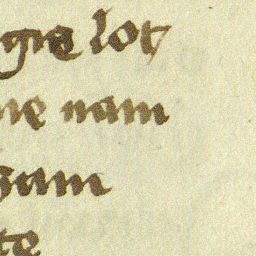 gie lot
ne nam
zum
te